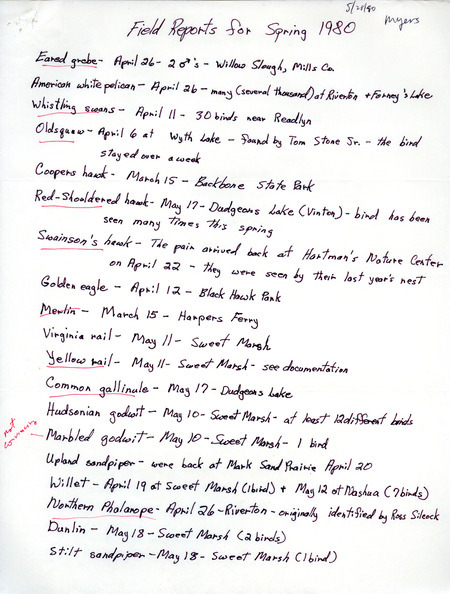 5/28/80 Myers
Field Reports for Spring 1980
Eared grebe - April 26 - 2 ♂'s - Willow Slough, Mills Co.
American white pelican - April 26 - many (several thousand) at Riverton + Forney's Lake
Whistling swans - April 11 - 30 birds near Readlyn
Oldsquaw - April 6 at Wyth Lake - found by Tom Stone Jr. - the bird
stayed over a week
Coopers hawk - March 15 - Backbone State Park
Red-Shouldered hawk - May 17 - Dudgeons Lake (Vinton) - bird has been
seen many times this spring
Swainson's hawk - The pair arrived back at Hartman's Nature Center
on April 22 - they were seen by their last year's nest
Golden eagle - April 12 - Black Hawk Park
Merlin - March 15 - Harpers Ferry
Virginia rail - May 11 - Sweet Marsh
Yellow rail - May 11 - Sweet Marsh - see documentation
Common gallinule - May 17 - Dudgeons Lake
Hudsonian godwit - May 10 - Sweet Marsh - at least 12 different birds
Marbled godwit - May 10 - Sweet Marsh - 1 bird
Upland sandpiper - were back at Mark Sand Prairie April 20
Willet - April 19 at Sweet Marsh (1 bird) + May 12 at Nashua (7 birds)
Northern Phalarope - April 26 - Riverton - originally identified by Ross Silcock
Dunlin - May 18 - Sweet Marsh (2 birds)
Stilt sandpiper - May 18 - Sweet Marsh (1 bird)